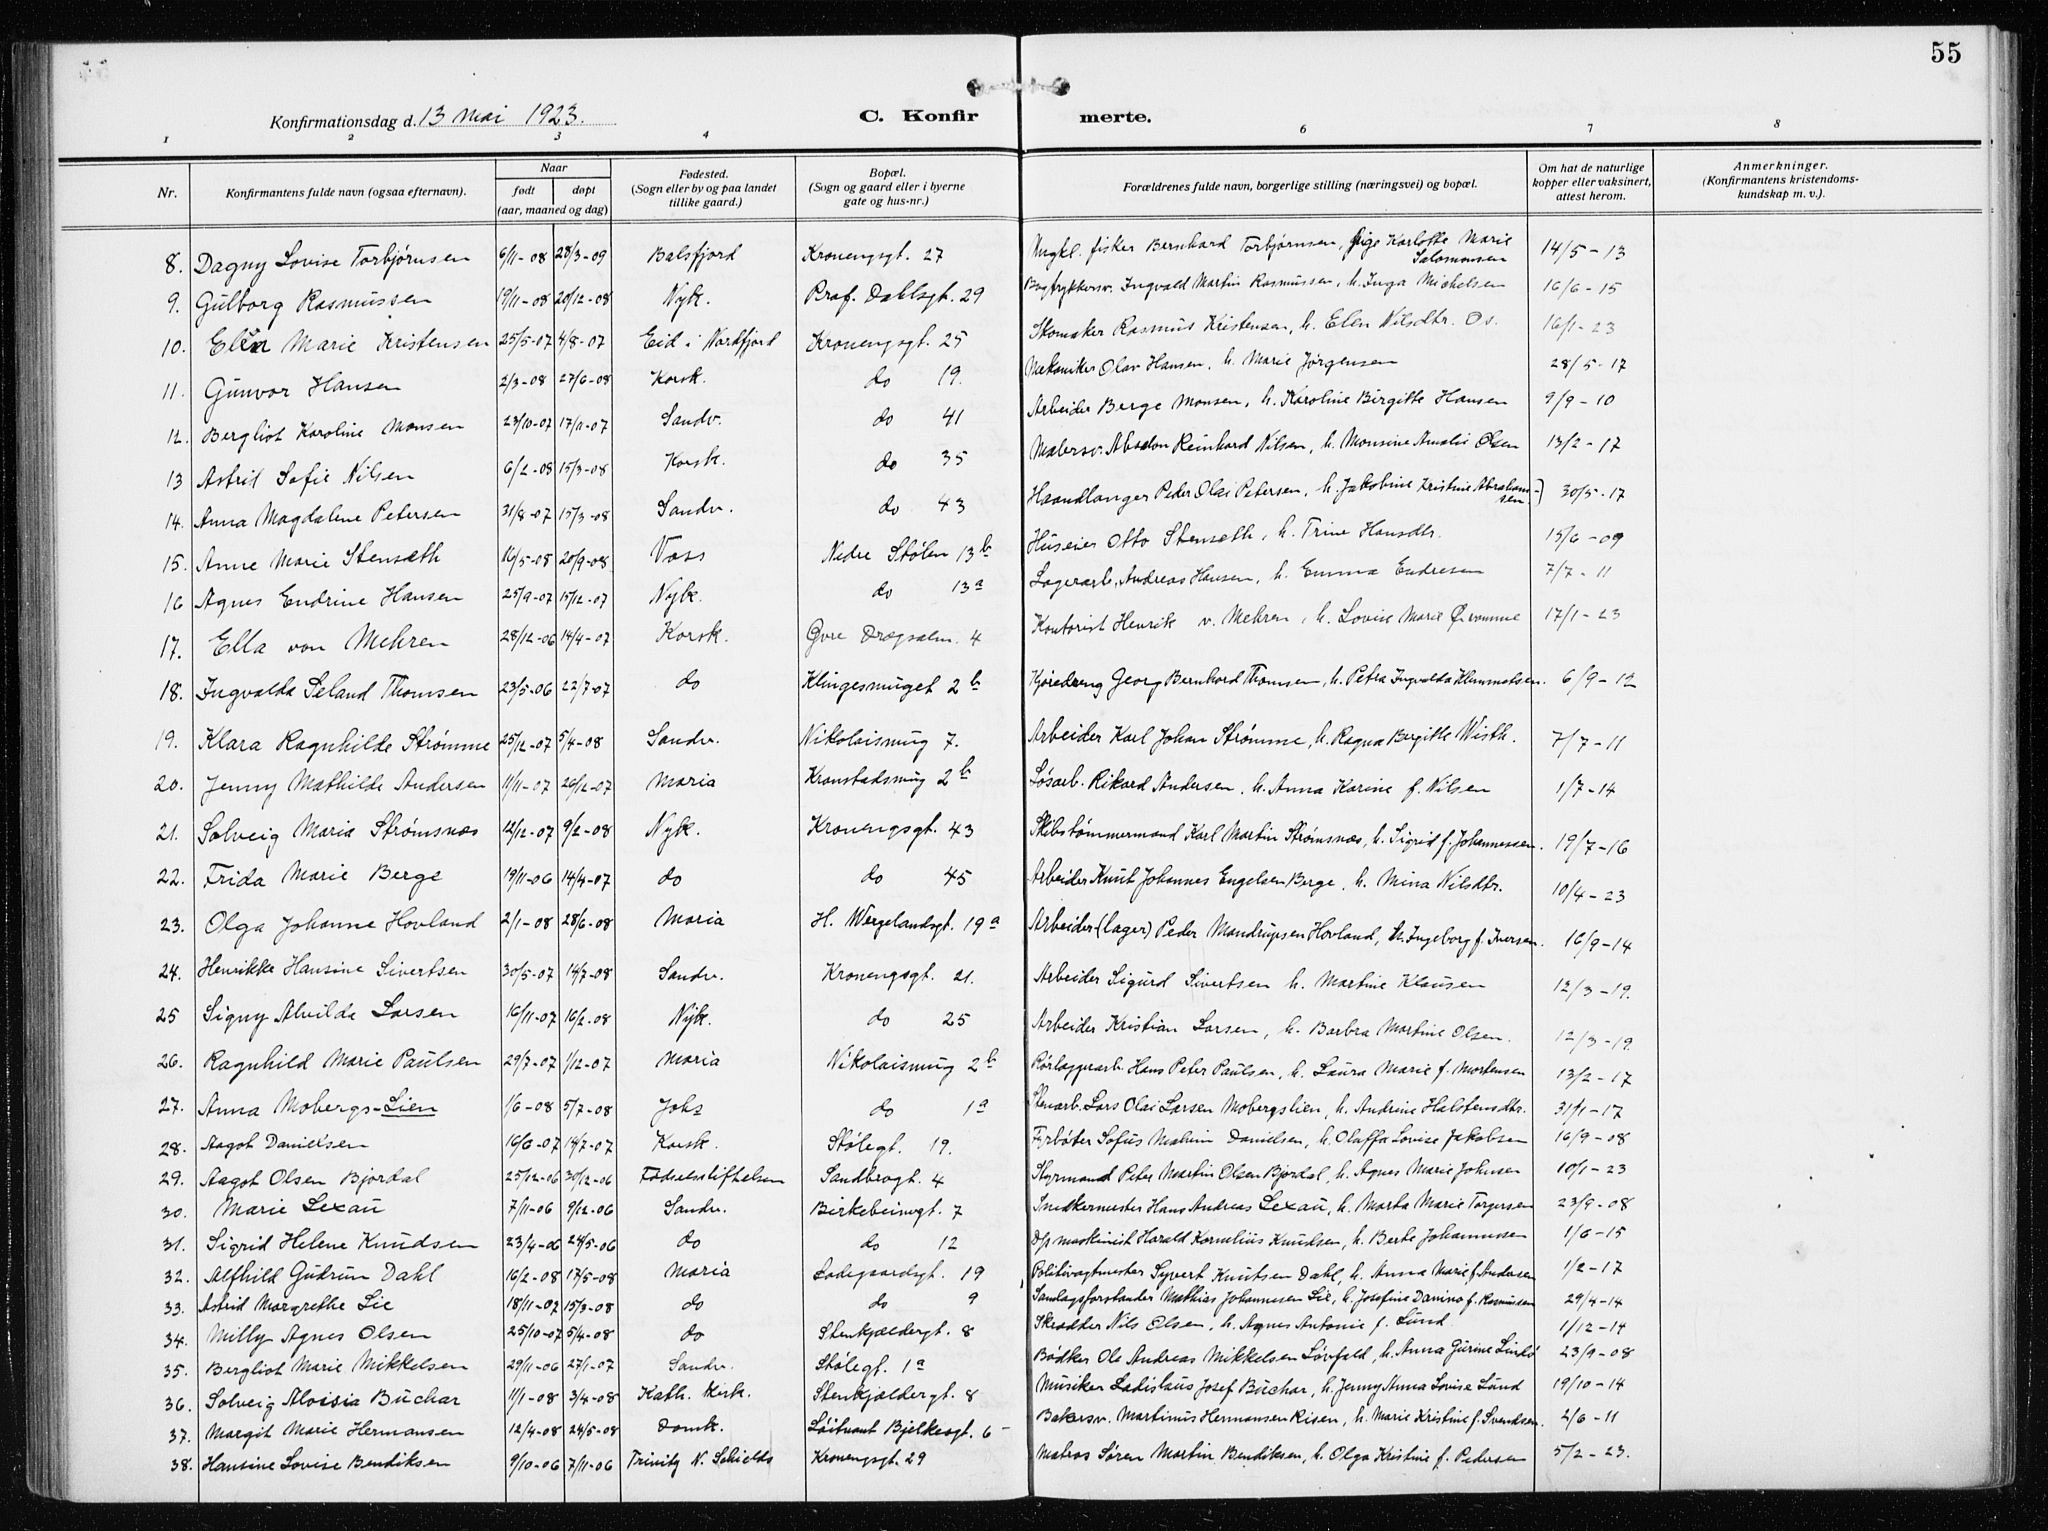 55
Konfirmationsdag d. 13 mai 1923.
C. Konfirmerte.
1 2 3 4 6 7 8
Nr.
Konfirmantens fulde navn (ogsaa efternavn).
Naar
født døpt
(aar, maaned og dag)
Fødested.
(Sogn eller by og paa landet
tillike gaard.)
Bopæl.
(Sogn og gaard eller i byerne
gate og hus-nr.)
Forældrenes fulde navn, borgerlige stilling (næringsvei) og bopæl.
Om hat de naturlige
kopper eller vaksinert,
attest herom.
Anmerkninger.
(Konfirmantens kristendoms-
kundskap m. v.).
8. Dagny Lovise Torbjørnsen 6/11-08 28/3-09 Balsfjord Kronengsgt. 27 Ungkl. fisker Bernhard Torbjørnsen, pige Karlotte Marie Salomonsen 14/5-13
9. Gulborg Rasmussen 19/11-08 20/12-08 Nyk. Prof. Dahlsgt. 29 Bogtrykkersv. Ingvald Martin Rasmussen, h. Inga Michelsen 16/6-15
10. Elen Marie Kristensen 25/5-07 4/8-07 Eid i Nordfjord Kronengsgt. 25 Skomaker Rasmus Kristensen, h. Elen Nilsdtr. Os. 16/1-23
11. Gunvor Hansen 2/3-08 27/6-08 Korsk. do 19. Mekaniker Olav Hansen, h. Marie Jørgensen 28/5-17
12. Bergliot Karoline Monsen 23/10-07 17/11-07 Sandv. do 41 Arbeider Berge Monsen, h. Karoline Birgitte Hansen 9/9-10
13 Astrid Sofie Nilsen 6/2-08 15/3-08 Korsk. do 35 Malersv. Absalon Reinhard Nilsen, h. Monsine Amalie Olsen 13/2-17
14. Anna Magdalene Petersen 31/8-07 15/3-08 Sandv. do 43 Haandlanger Peder Olai Petersen, h. Jakobine Kristine Abrahamsen 30/5-17
15. Anne Marie Stensæth 16/5-08 20/9-08 Voss Nedre Stølen 13b Huseier Otto Stensæth, h. Trine Hansdtr. 15/6-09
16 Agnes Endrine Hansen 25/9-07 15/12-07 Nyk. do 13a Lagerarb. Andreas Hansen, h. Emma Endresen 7/7-11
17. Ella von Mehren 28/12-06 14/4-07 Korsk. Øvre Dregsalm. 4 Kontorist Henrik v. Mehren, h. Lovise Marie 17/1-23
18. Ingvalda Seland Thomsen 23/5-06 22/7-07 do Klingesmuget 2b Kjøredreng Georg Bernhard Thomsen, h. Petra Ingvalda Klemmetsen. 6/9-12
19. Klara Ragnhilde Strømme 25/12-07 5/4-08 Sandv. Nikolaismug 7. Arbeider Karl Johan Strømme, h. Ragna Bergitte Wisth. 7/7-11
20. Jenny Mathilde Andersen 11/11-07 26/12-07 Maria Kronstadsmug 2b Løsarb. Rikard Andersen, h. Anna Karine f. Nilsen 1/7-14
21. Solveig Maria Strømsnæs 12/12-07 9/2-08 Nyk. Kronengsgt. 43 Skibstømmermand Karl Martin Strømsnæs, h. Sigrid f. Johannessen. 19/7-16
22. Frida Marie Berge 19/11-06 14/4-07 do do 45 Arbeider Knut Johannes Engelsen Berge, h. Mina Nilsdtr. 10/4-23
23. Olga Johanne Hovland 2/1-08 28/6-08 Maria H. Wergelandsgt. 19a Arbeider (lager) Peder Mandrupsen Hovland, h. Ingeborg f. Iversen. 16/9-14
24. Henrikke Hansine Sivertsen 30/5-07 14/7-08 Sandv. Kronengsgt. 21. Arbeider Sigurd Sivertsen h. Martine Klausen 12/3-19.
25 Signy Alvilde Larsen 16/11-07 16/2-08 Nyk. do 25 Arbeider Kristian Larsen, h. Barbra Martine Olsen. 12/3-19.
26. Ragnhild Marie Paulsen 29/7-07 1/12-07 Maria Nikolaismug 2b Rørlæggerarb. Hans Peter Paulsen, h. Laura Marie f. Mortensen 13/2-17
27. Anna Mobergs-Lien 1/6-08 5/7-08 Johs do 1a Stenarb. Lars Olai Larsen Mobergslien, h. Andrine Halstensdtr. 31/1-17
28. Aagot Danielsen 16/6-07 14/7-07 Korsk. Stølegt. 19. Fyrbøter Sofus Danielsen, h. Olaffa Lovise Jakobsen 16/9-08
29. Aagot Olsen Bjordal 25/12-06 30/12-06 Fødselsstiftelsen Sandbrogt. 4 Styrmand Peter Martin Olsen Bjordal, h. Agnes Marie Johnsen 10/1-23
30. Marie Lexau 7/11-06 9/12-06 Sandv. Birkebeinergt. 7 Snedkermester Hans Andreas Lexau, h. Marta Marie Torgersen 23/9-08
31. Sigrid Helene Knudsen 23/4-06 24/5-06 do do 12 D/p maskinist Harald Kornelius Knudsen, h. Berte Johannesen 1/6-15
32. Alfhild Gudrun Dahl 16/2-08 17/5-08 Maria Ladegaardsgt. 19 Politivagtmester Syvert Knutsen Dahl, h. Anna Marie f. Andersen 1/2-17
33. Astrid Margrethe Lie 18/11-07 15/3-08 do do 9 Samlagsforstander Mathias Johannesen Lie, h. Josefine Danina f. Rasmussen 29/4-14
34. Milly Agnes Olsen 25/10-07 5/4-08 do Stenkjeldergt. 8 Skrædder Nils Olsen, h. Agnes Antonie f. Lund. 1/12-14
35. Bergliot Marie Mikkelsen 29/11-06 27/1-07 Sandv. Stølegt. 1a Bødker Ole Andreas Mikkelsen Løvfald, h. Anna Gurine 23/9-08
36. Solveig Aloisia Buchar 1/1-08 3/4-08 Kath. Kirk. Stenkjældergt. 8 Musiker Ladislaus Josef Buchar, h. Jenny Anna Lovise Lund 19/10-14
37. Margit Marie Hermansen 12/4-08 24/5-08 Domk. Løitnant Bjelkesgt. 6 Bakersv. Martinus Hermansen Risen, h. Marie Kristine f. Svendsen. 2/6-11
38. Hansine Lovise Bendiksen 9/10-06 7/11-06 Trinity N. Schields Kronengsgt. 29 Matros Søren Martin Bendiksen, h. Olga Kristine f. Pedersen 5/2-23.